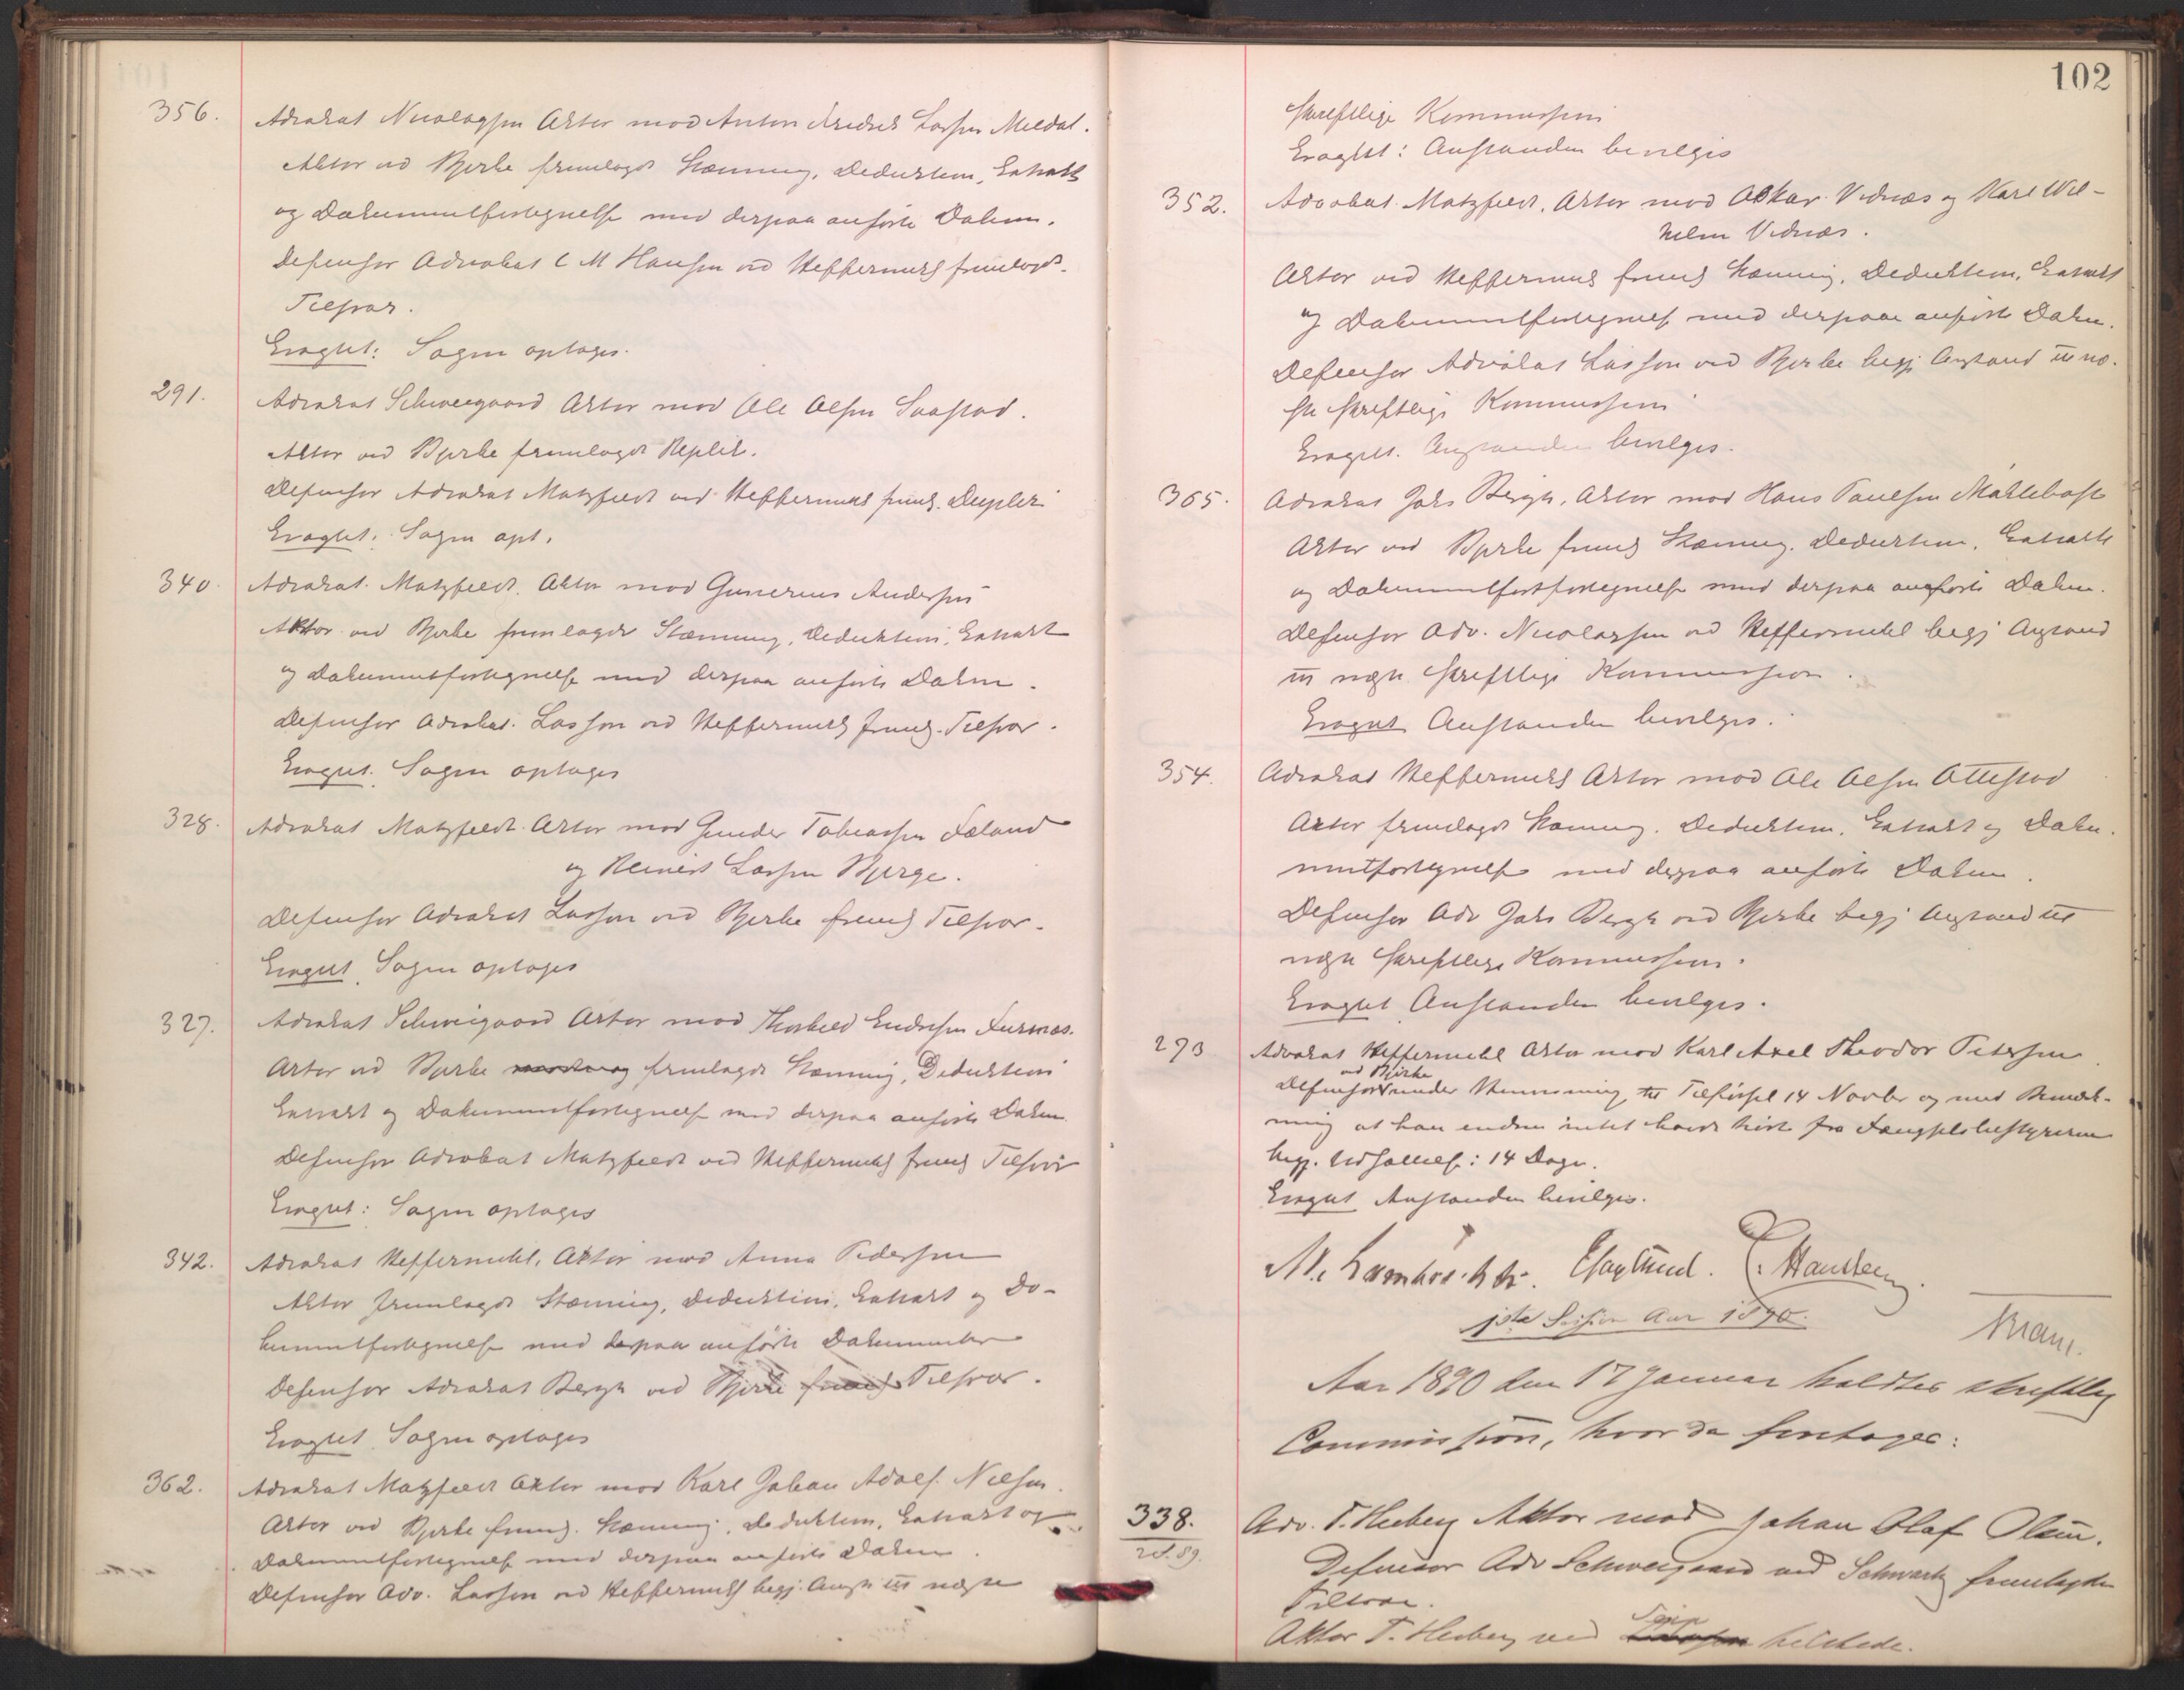 356. Advokat Nicolaysen Aktor mod Anton Fredrik Larsen Meldal.
Aktor ved Bjerke fremlagde Stævning, Deduktion, Extrakt
og Dokumentfortegnelse med derpaa anførte Dokum.
Defensor Advokat C M Hansen ved Heffermehl fremlagde
Tilsvar.
Eragtet: Sagen optages.
291. Advokat Schweigaard Aktor mod Ole Olsen
Aktor ved Bjerke fremlagde Replik.
Defensor Advokat Matzfeldt ved Heffermehl freml. Duplik
Eragtet: Sagen opt.
340. Advokat Matzfeldt Aktor mod Gunerius Andersen
Aktor ved Bjerke fremlagde Stævning, Deduktion, Extrakt
og Dokumentfortegnelse med derpaa anførte Dokum.
Defensor Advokat Lasson ved Heffermehl freml. Tilsvar.
Eragtet. Sagen optages
328. Advokat Matzfeldt Aktor mod Gunder Tobiassen Føland
og Reinert Larsen Bjerge.
Defensor Advokat Lasson ved Bjerke freml Tilsvar.
Eragtet Sagen optages
327. Advokat Schweigaard Aktor mod Endresen
Aktor ved Bjerke fremlagde Stævning, Deduktion
Extrakt og Dokumentfortegnelse med derpaa anførte Dokum
Defensor Advokat Matzfeldt ved Heffermehl freml Tilsvar
Eragtet: Sagen optages
342. Advokat Heffermehl, Aktor mod Anna Pedersen
Aktor fremlagde Stævning, Deduktion, Extrakt og Do-
kumentfortegnelse med derpaa anførte Dokumenter
Defensor Advokat Bergh ved Bjerke freml Tilsvar.
Eragtet Sagen optages
362. Advokat Matzfeldt Aktor mod Karl Johan Adolf Nilsen.
Aktor ved Bjerke freml. Stævning, Deduktion, Extrakt og
Dokumentfortegnelse med derpaa anførte Dokum
Defensor Adv. Lasson ved Heffermehl begj. Angst til næste
102
skriftlige Kommission
Eragtet: Anstanden bevilges
352. Advokat Matzfeldt, Aktor mod Oskar Vidnæs og Karl Wil-
helm Vidnæs.
Aktor ved Heffermehl freml Stævning, Deduktion, Extrakt
og Dokumentfortegnelse med derpaa anførte Dokum.
Defensor Advokat Lasson ved Bjerke begj Anstand til næ-
ste skriftlige Kommission
Eragtet. Anstanden bevilges.
365. Advokat Johs Bergh, Aktor mod Hans Paulsen
Aktor ved Bjerke freml Stævning, Deduktion, Extrakt
og Dokumentfortfortegnelse med derpaa anførte Dokum.
Defensor Adv. Nicolaysen ved Heffermehl begj Anstand
til næste skriftlige Kommission.
Eragtet Anstanden bevilges.
354. Advokat Heffermehl Aktor mod Ole Olsen Ottestad
Aktor fremlagde Stævning, Deduktion, Extrakt og Doku-
mentfortegnelse med derpaa anførte Dokum.
Defensor Adv Johs Bergh ved Bjerke begj Anstand til
næste skriftlige Kommission.
Eragtet Anstanden bevilges.
293 Advokat Heffermehl Aktor mod Karl Axel Theodor Petersen
ved Bjerke
Defensor under Henvisning til Tilførsel 14 Novbr og med Bemærk-
ning at han endnu intet havde hørt fra Fængselsbestyreren
begj. Udsættelse: 14 Dage.
Eragtet Anstanden bevilges.
E. Hansteen
1ste Session Aar 1890.
Aar 1890 den 17 Januar holdtes skriftlig
Commission, hvor da foretoges:
338.
2 S. 89.
Adv. T. Heiberg Aktor mod Johan Olaf Olsen.
Defensor Adv Schweigaard ved Schwartz fremlagde
Tilsvar.
Aktor T. Heiberg ved tilstede.